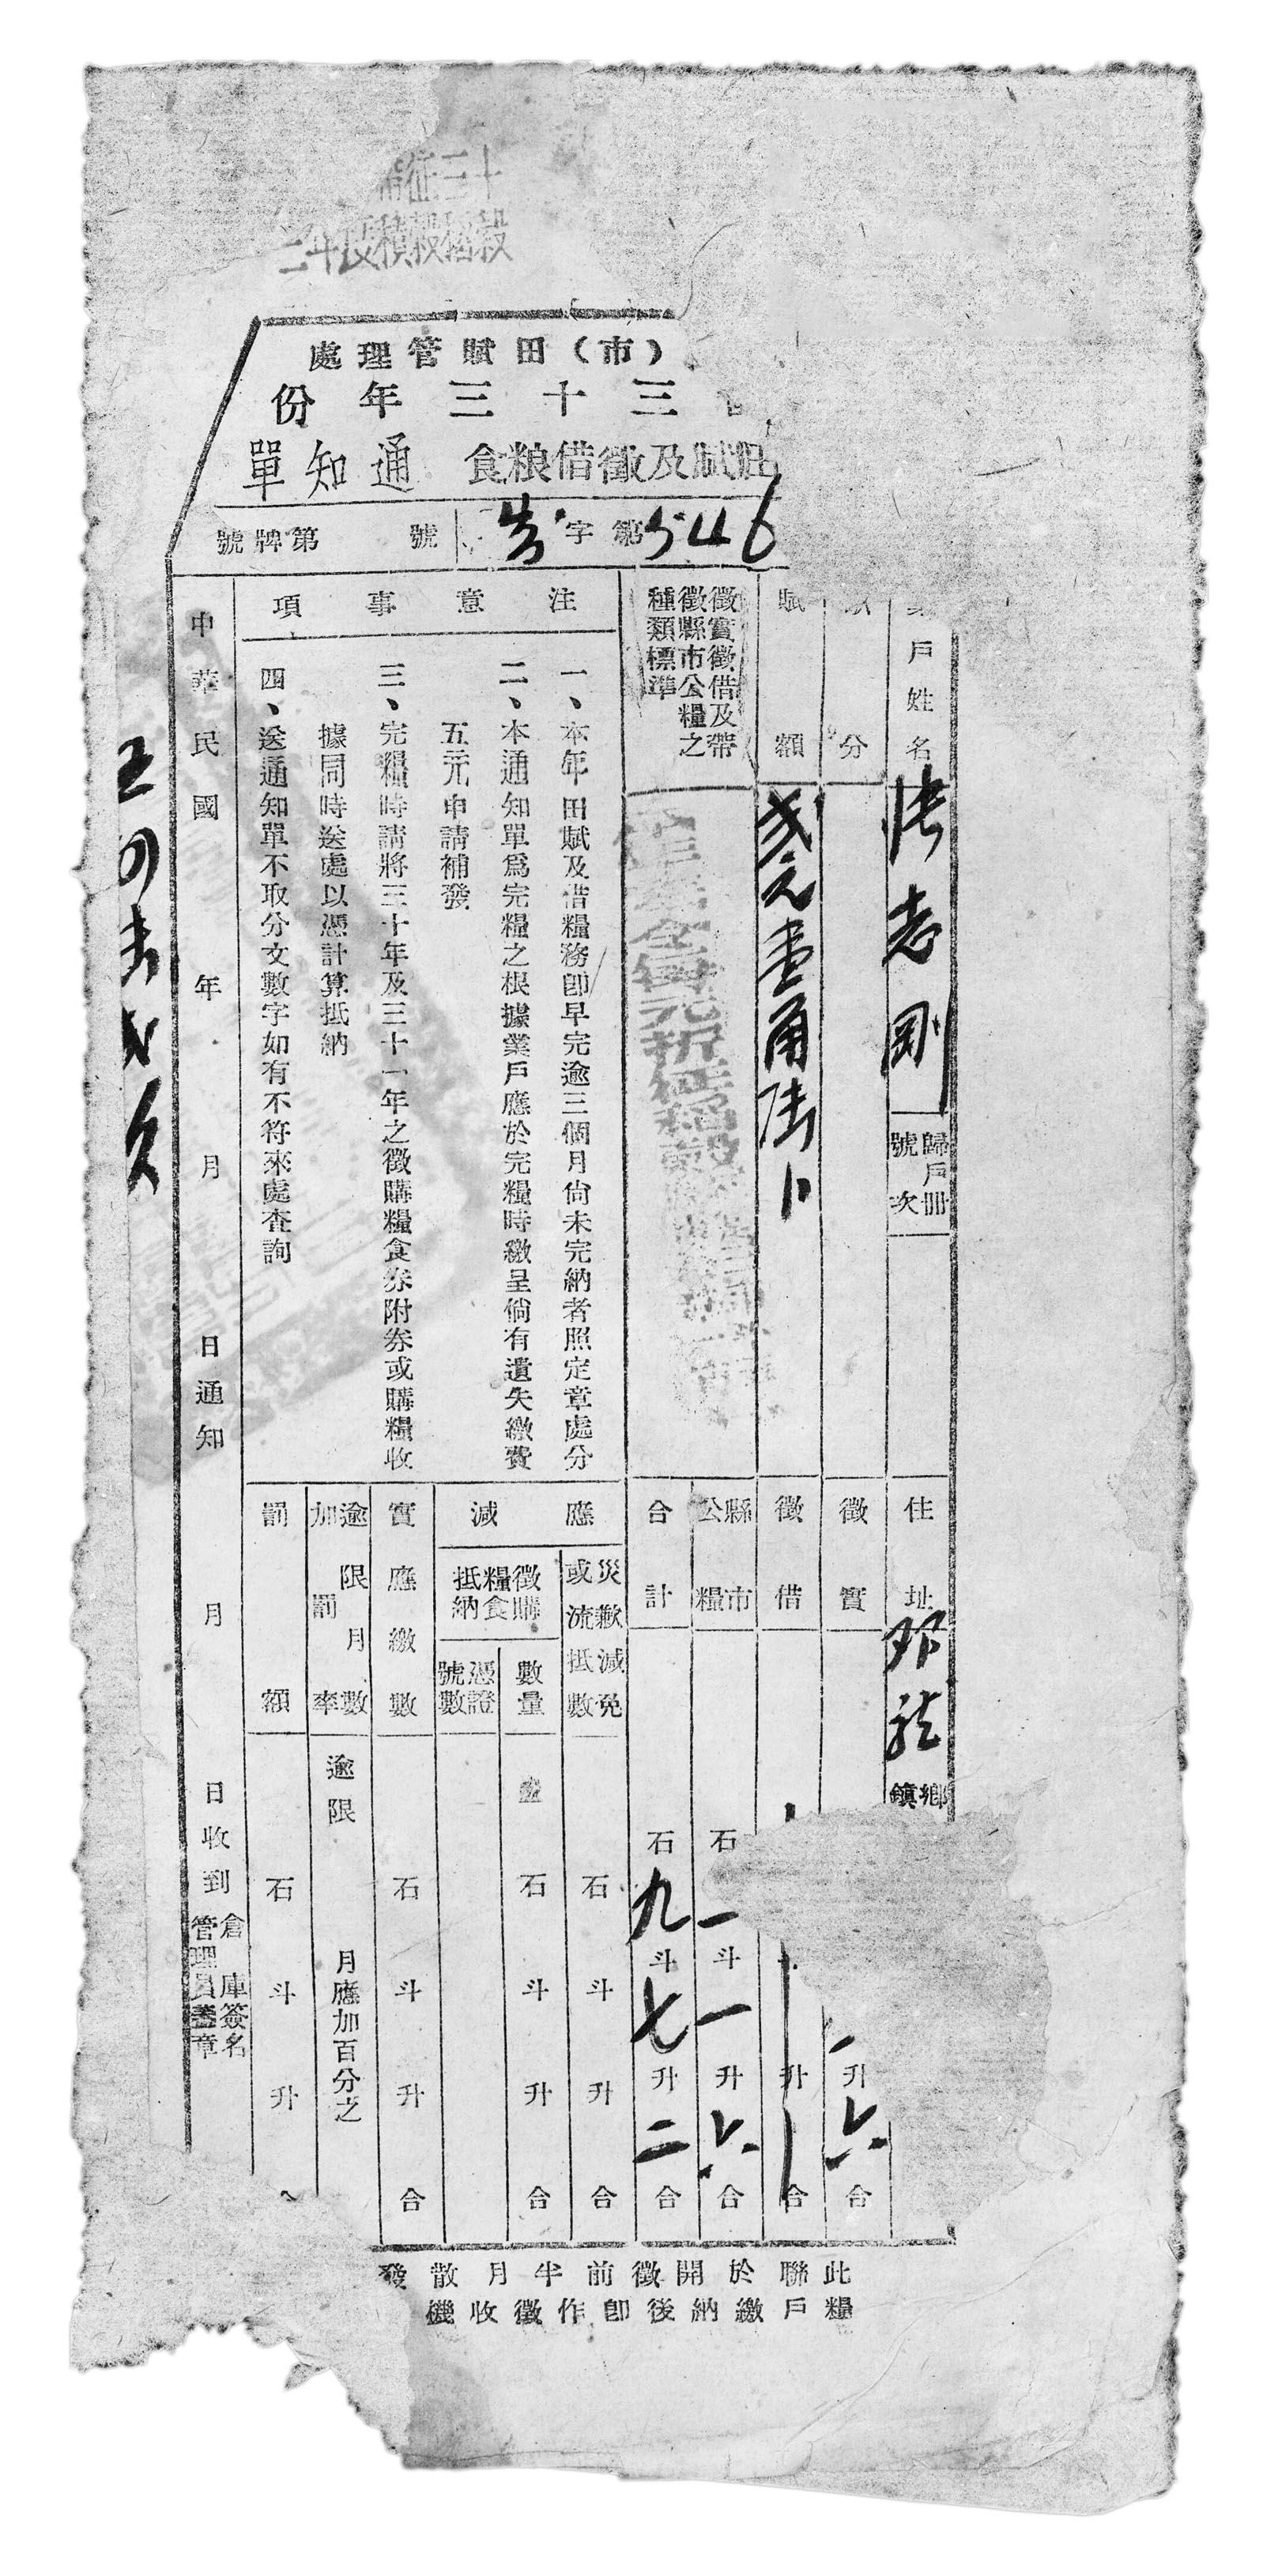 征三十
二年度積穀稻穀
（市）田賦管理處
三十三年份
賦及徵借粮食 通知單
字第546號 第 牌號
業戶姓名 張志剛
歸戶冊號次
住址 鄧龍 鄉鎮
分
賦額 貳元壹角陸卜
徵實徵借及帶
徵縣市公糧之
種類標準
每元折征稻穀
徵實 升六合
徵借 升 合
縣市公糧 石一斗一升六合
合計 石九斗七升二合
注意事項
一、本年田賦及借糧務即早完逾三個月尙未完納者照定章處分
二、本通知單爲完糧之根據業戶應於完糧時繳呈倘有遺失繳費
五元申請補發
三、完糧時請將三十年及三十一年之徵購糧食券附券或購糧收
據同時送處以憑計算抵納
四、送通知單不取分文數字如有不符來處查詢
應減
災歉減免或流抵數 石 斗 升 合
徵購糧食抵納
數量 石 斗 升 合
憑證號數
實應繳數 石 斗 升 合
逾限月數加罰率 逾限 月應加百分之
罰額 石 斗 升
中華民國 年 月 日通知 月 日收到 倉庫管理員簽名蓋章
此聯於開徵前半月散發
糧戶繳納後卽作徵收機